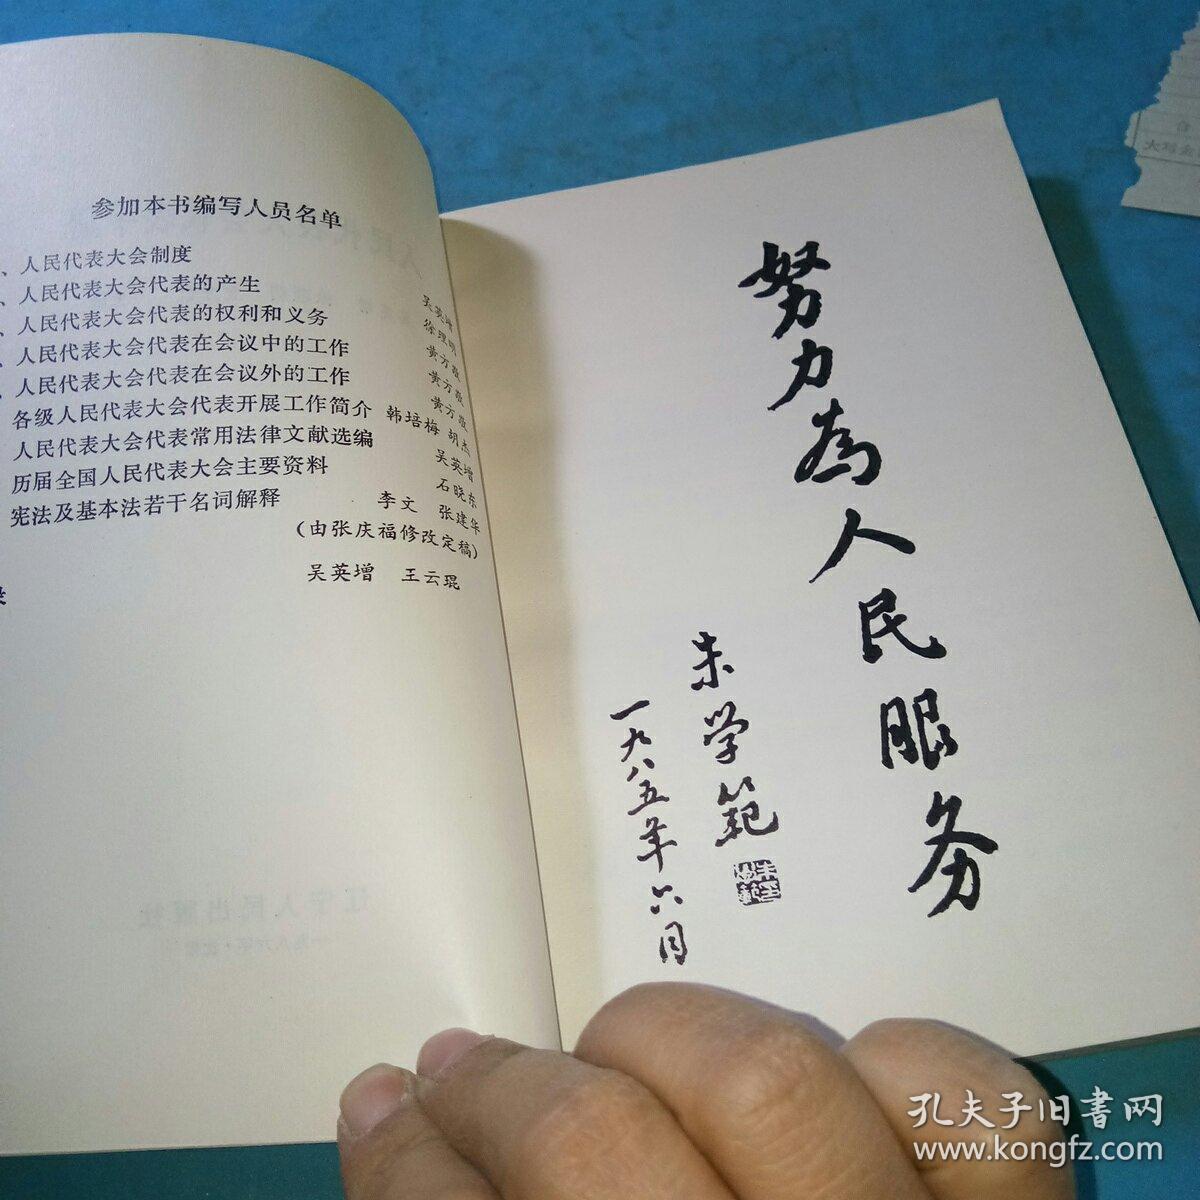 参加本书编写人员名单
、人民代表大会制度 吴英增
、人民代表大会代表的产生 徐理明
、人民代表大会代表的权利和义务 黄方敬
、人民代表大会代表在会议中的工作 黄方敬
、人民代表大会代表在会议外的工作 黄方敬
各级人民代表大会代表开展工作简介 韩培梅 胡杰
人民代表大会代表常用法律文献选编 吴英增
历届全国人民代表大会主要资料 石晓东
宪法及基本法若干名词解释 李文 张建华
(由张庆福修改定稿)
吴英增 王云琨
努力為人民服务
朱学範
一九八五年六月
辽宁人民出版社
大写金
孔夫子旧書网
www.kongfz.com